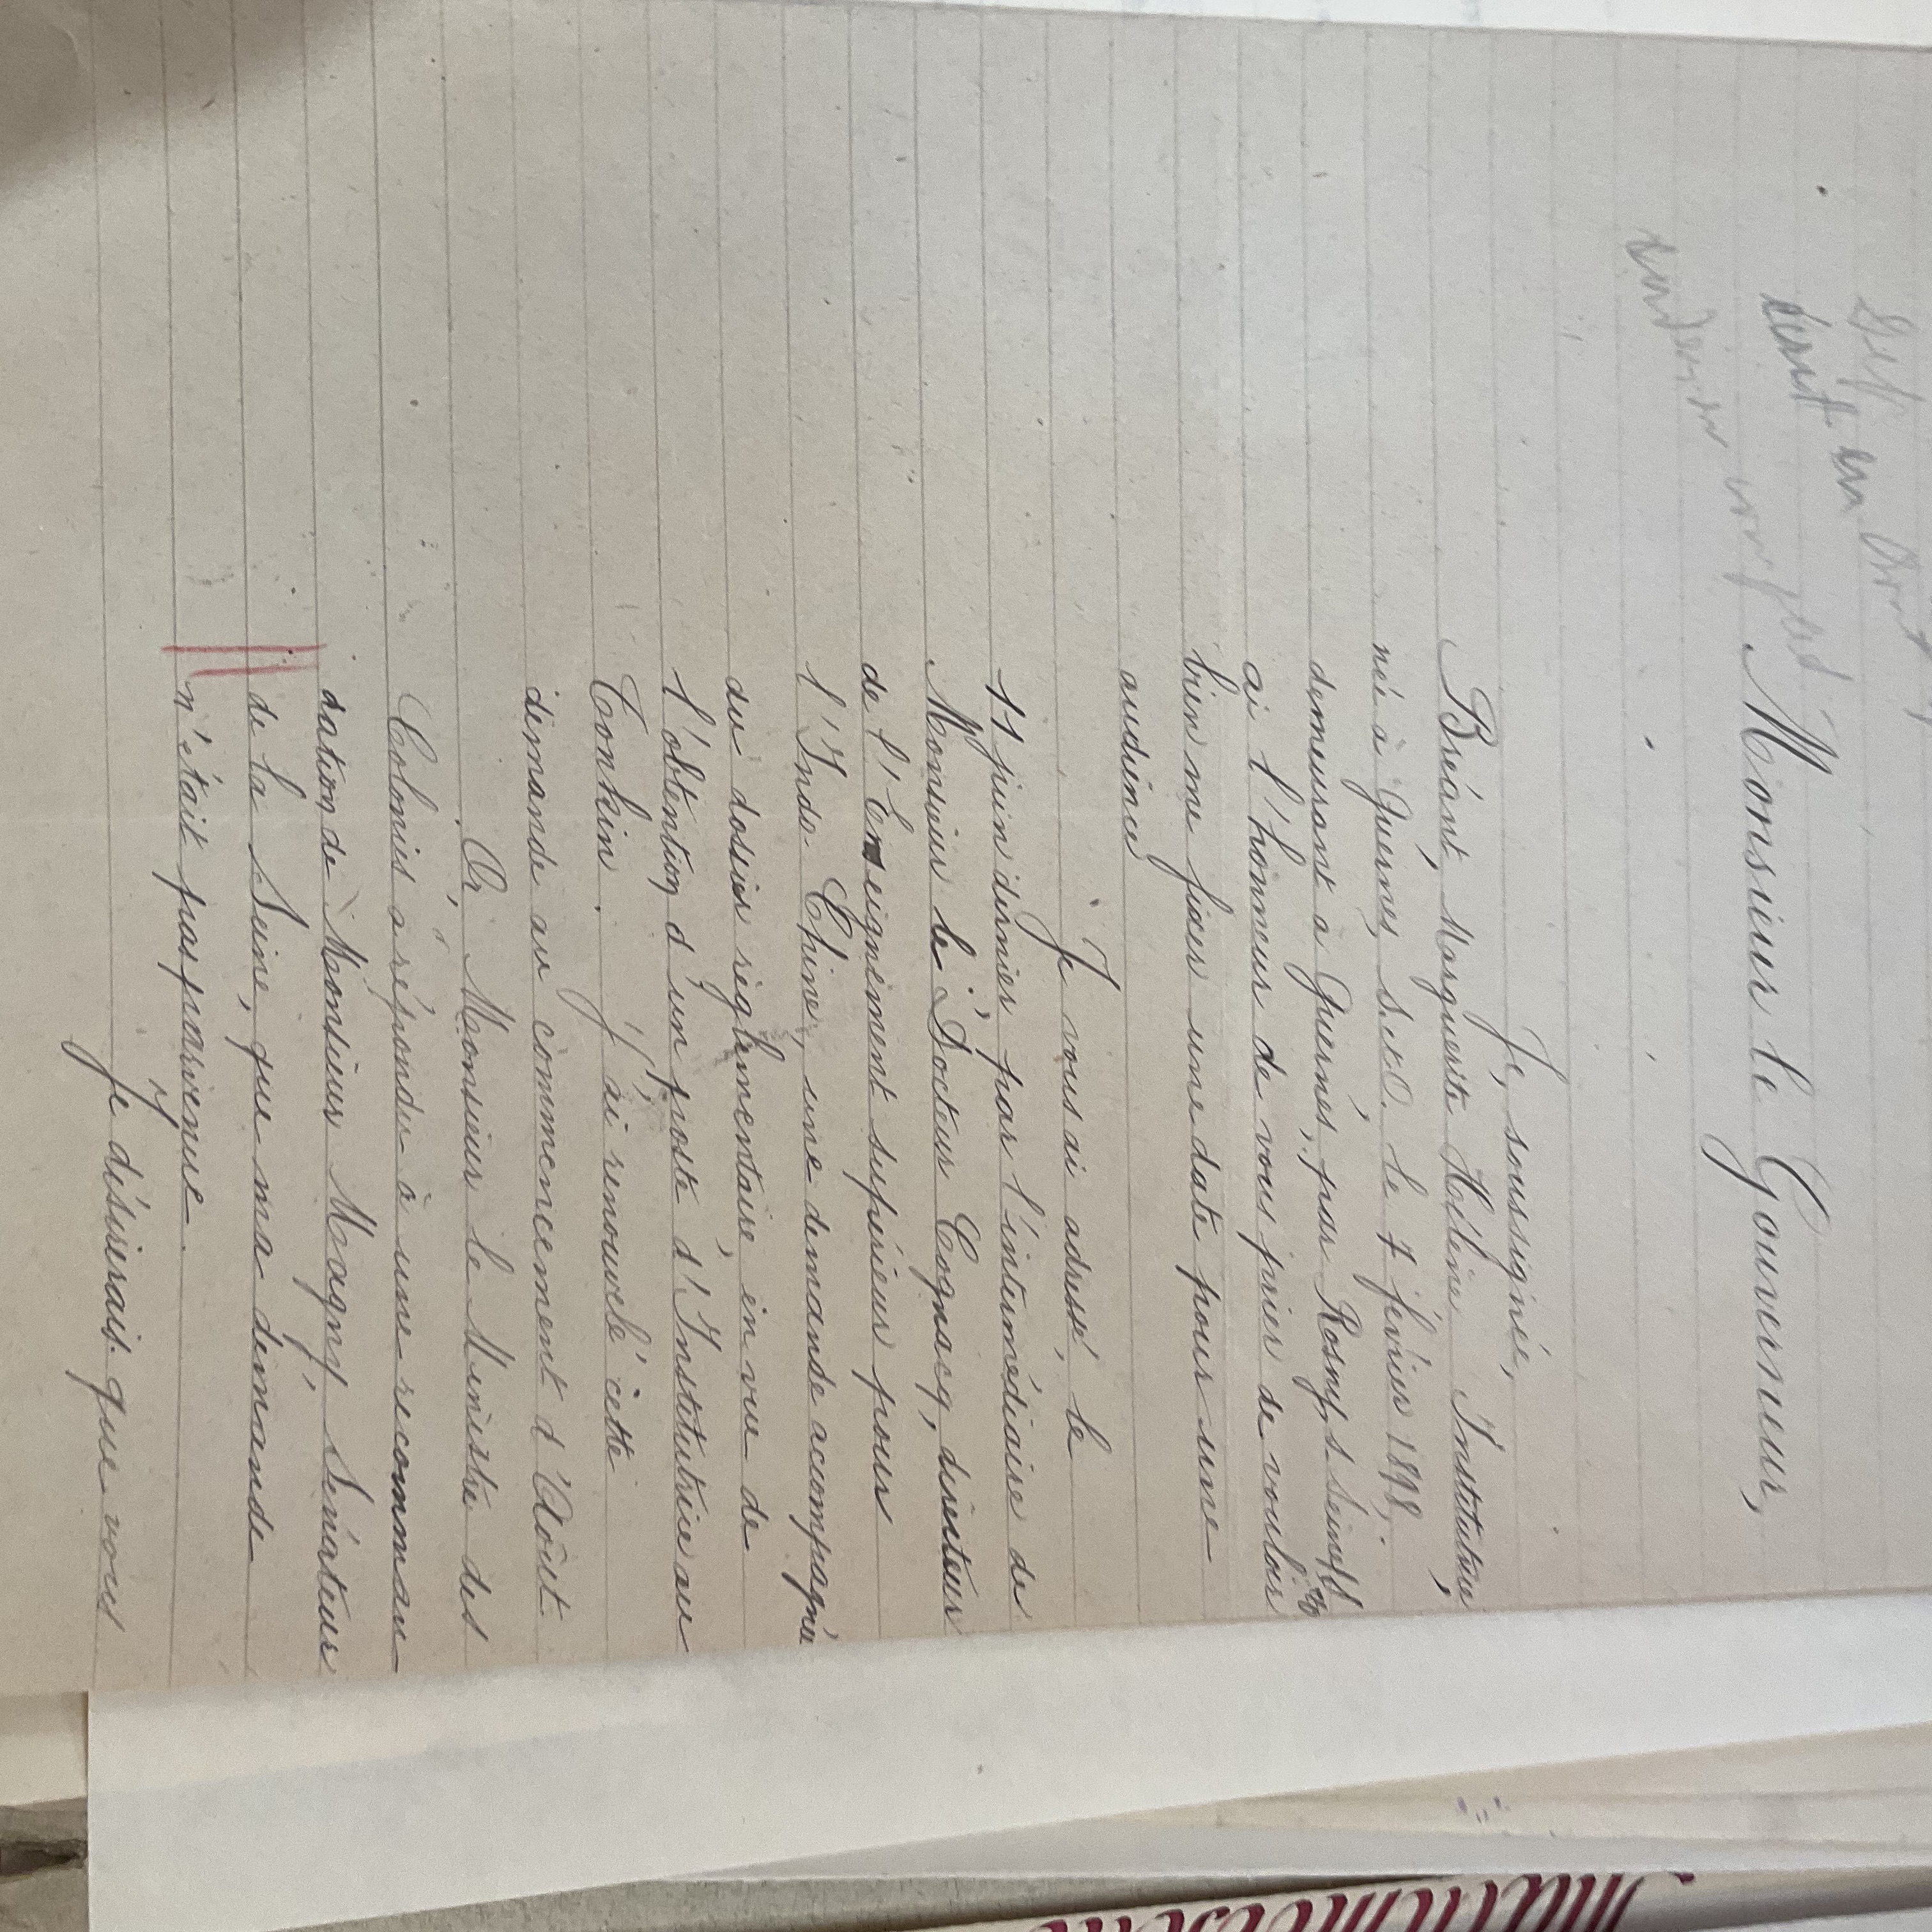 dont un
Monsieur le Gouverneur,
Je, soussignée,
Bréant, Marguerite Hélène Institutrice,
née à Guernes S. et O. le 7 février 1898,
demeurant à Guernes, par Rosny s Seine S et O
ai l'honneur de vous prier de vouloir
bien me fixer une date pour une
audience
Je vous ai adressé, le
11 juin dernier par l'intermédiaire de
Monsieur le Docteur Cognacq, directeur
de l'Enseignement supérieur pour
l'Indo-Chine, une demande accompagnée
du dossier réglementaire, en vue de
l'obtention d'un poste d'Institutrice au
Tonkin. J'ai renouvelé cette
demande au commencement d'Août.
Or, Monsieur le Ministre des
Colonies a répondu à une recomman-
dation de Monsieur Magny, Sénateur
de la Seine, que ma demande
n'était pas parvenue.
Je désirerais que vous